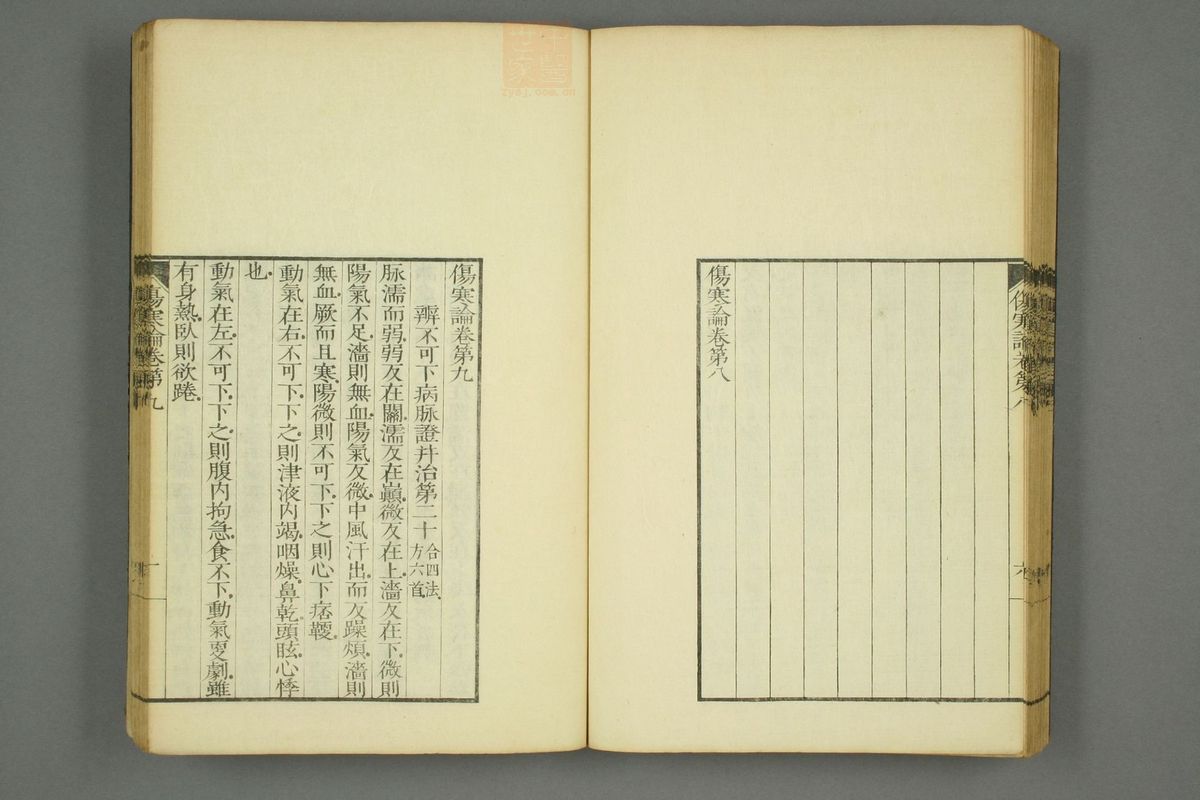 傷寒論卷第八
傷寒論卷第九
辨不可下病脉證并治第二十 合四法 方六首
脉濡而弱。弱反在關。濡反在巔。微反在上。濇反在下。微則
陽氣不足。濇則無血。陽氣反微。中風汗出。而反躁煩。濇則
無血。厥而且寒。陽微則不可下。下之則心下痞鞕。
動氣在右。不可下。下之則津液內竭。咽燥鼻乾。頭眩心悸
也。
動氣在左。不可下。下之則腹內拘急。食不下。動氣更劇。雖
有身熱。臥則欲踡。
傷寒論卷第九
一
世醫
zysj.com.cn